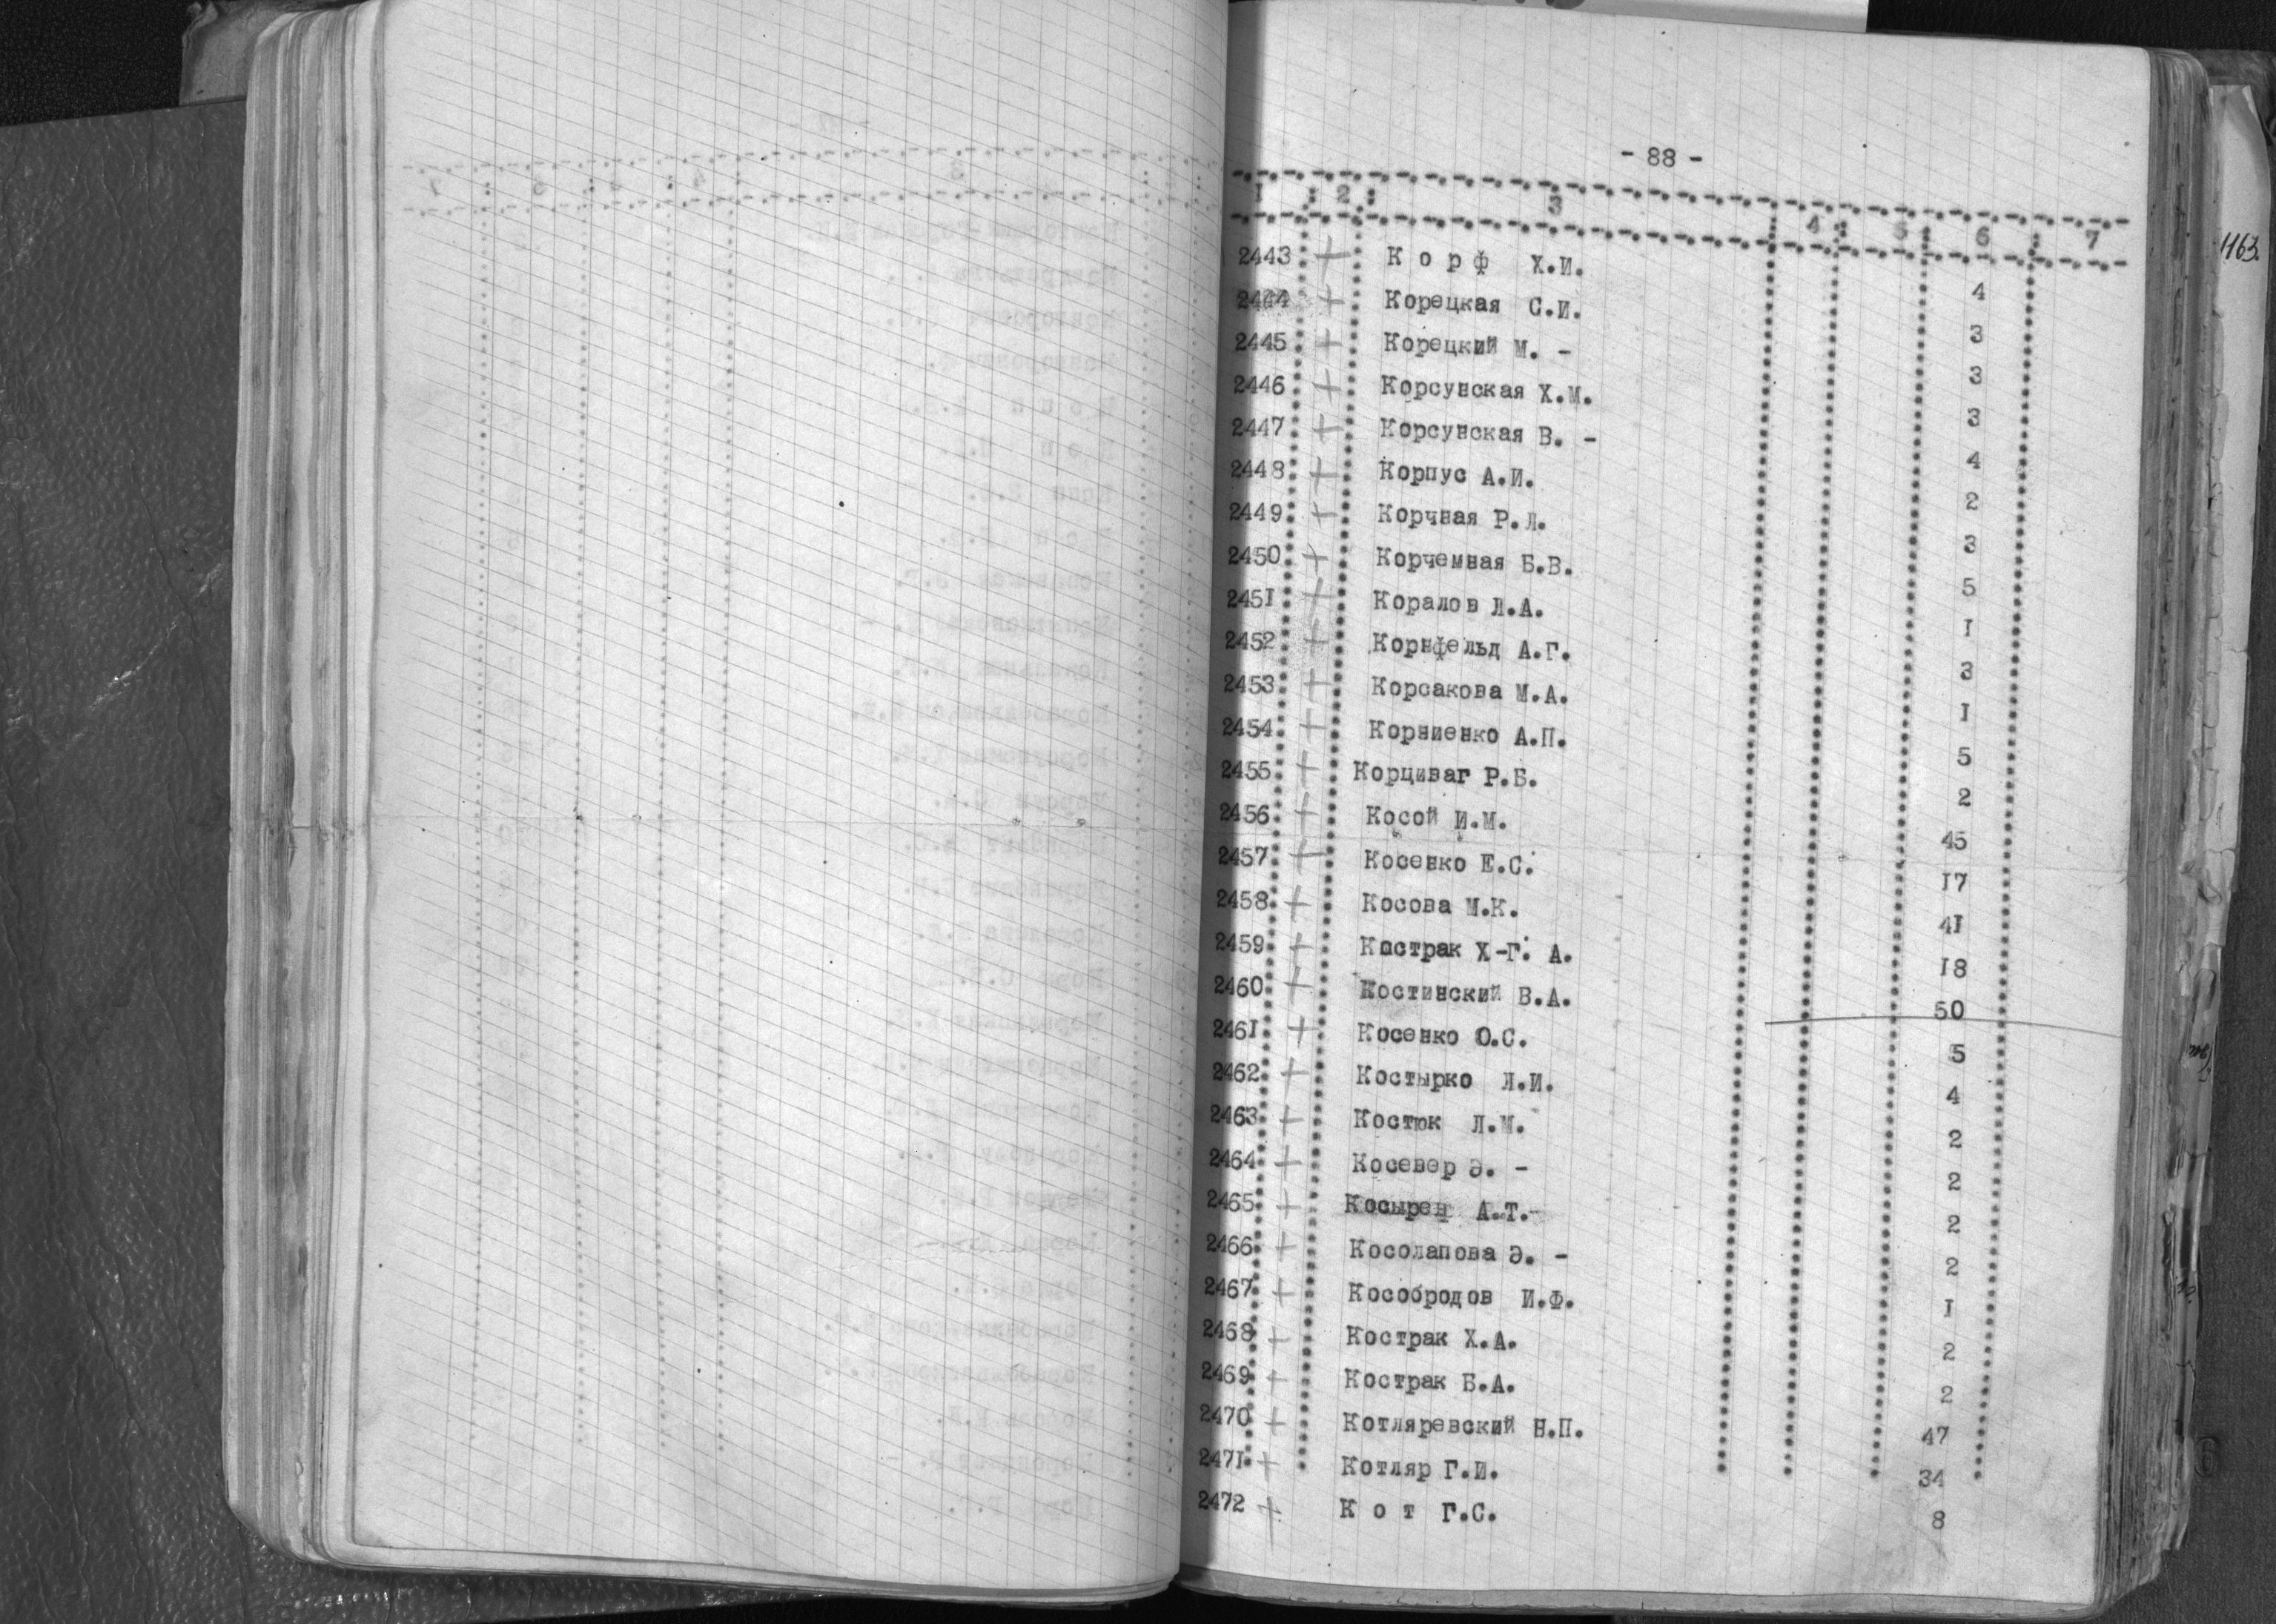 - 88 -
I : 2 : 3 : 4 : 5 : 6 : 7
1163.
2443 + К о р ф Х.И. 4
2444 + Корецкая С.И. 3
2445 + Корецкий М. - 3
2446 + Корсунская Х.М. 3
2447 + Корсунская В. - 4
2448 + Корпус А.И. 2
2449 + Корчная Р.Л. 3
2450 + Корчемная Б.В. 5
245I + Коралов Л.А. I
2452 + Корнфельд А.Г. 3
2453 + Корсакова М.А. I
2454 + Корниенко А.П. 5
2455 + Корцинаг Р.Б. 2
2456 + Косой И.М. 45
2457 + Косенко Е.С. I7
2458 + Косова М.К. 4I
2459 + Кострак Х-Г. А. I8
2460 + Костинский В.А. 50
246I + Косенко О.С. 5
2462 + Костырко Л.И. 4
2463 + Костюк Л.М. 2
2464 + Косенер Э. - 2
2465 + Косырев А.Т. 2
2466 + Косолапова Э. - 2
2467 + Кособродов И.Ф. I
2468 + Кострак Х.А. 2
2469 + Кострак Б.А. 2
2470 + Котляревский Н.П. 47
247I + Котляр Г.И. 34
2472 + К о т Г.С. 8